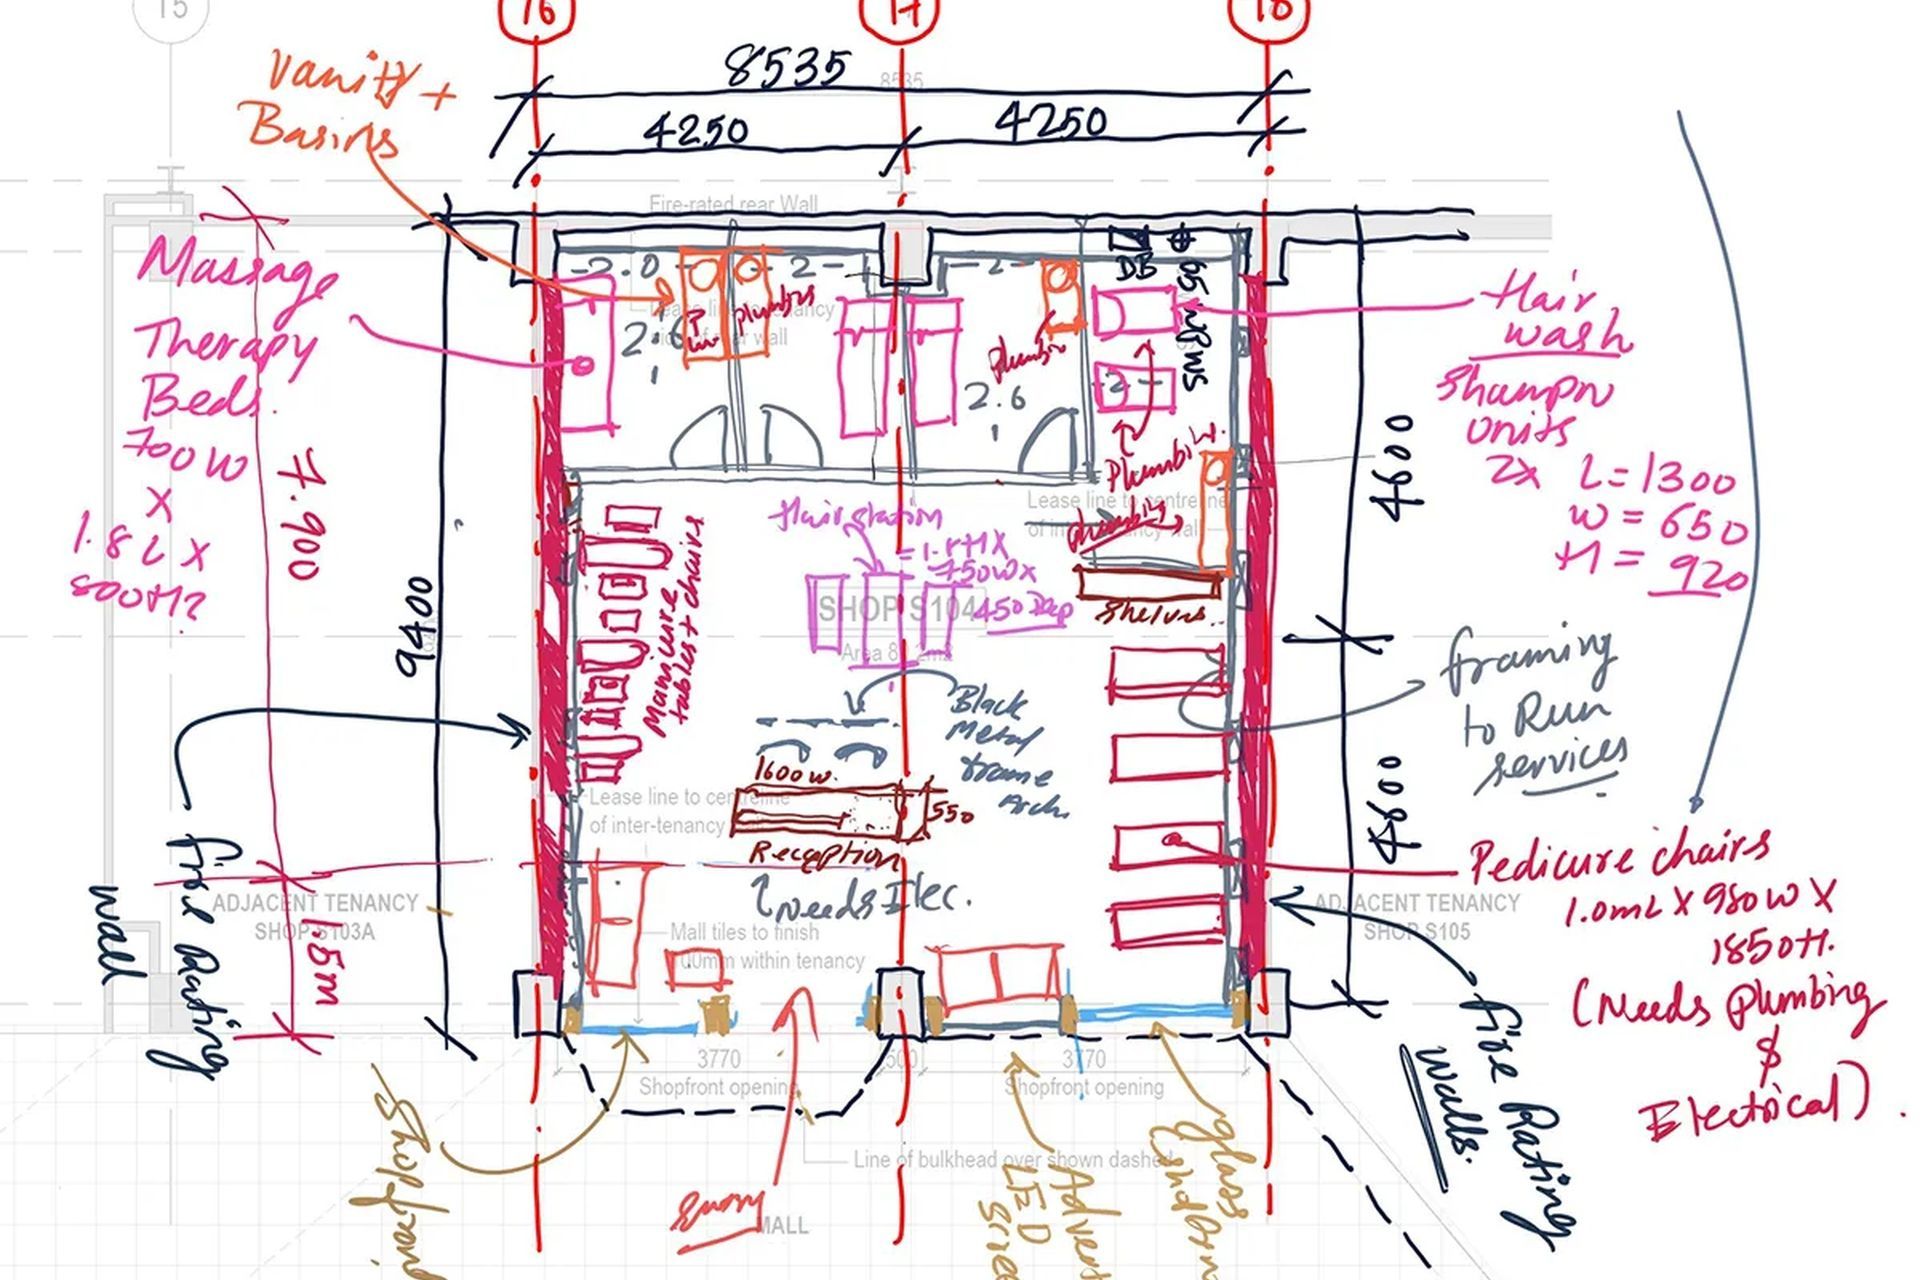 15
16
17
18
8535
8535
4250
4250
Vanity +
Basins
Fire-rated rear Wall
Massage
Therapy
Beds.
700W
X
1.8L X
800H?
7.900
9400
1.5m
2.0
2
2
2.6
1
plumbing
Lease line
rear wall
plumbing
2.6
1
DB
SMPWS
2
Hair
wash
Shampoo
Units
2x L=1300
W = 650
H = 920
plumbing
plumbing
Lease line to centreline
of inter-tenancy wall
4600
4800
Hair station
= 1.8H X
750W X
450 Deep
SHOP S104
Shelves..
Manicure
tables + chairs
Black
Metal
frame
Arch
framing
to Run
services
1600 w.
550
Reception
needs Elec.
Lease line to centreline
of inter-tenancy
ADJACENT TENANCY
SHOP S103A
ADJACENT TENANCY
SHOP S105
Mall tiles to finish
within tenancy
Pedicure chairs
1.0mL X 980W X
1850H.
(Needs plumbing
&
Electrical).
fire Rating
wall
fire Rating
walls.
3770
500
3770
Shopfront opening
Shopfront opening
Line of bulkhead over shown dashed
Entry
MALL
LED
glass